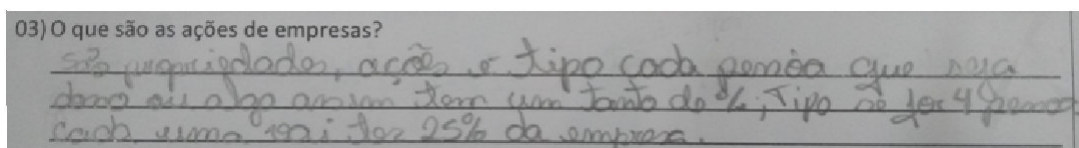 03) O que são as ações de empresas?
são propriedades, ações é tipo cada pessoa que seja
dono ou algo assim tem um tanto do %, Tipo se for 4 pessoas
cada uma vai ter 25% da empresa.